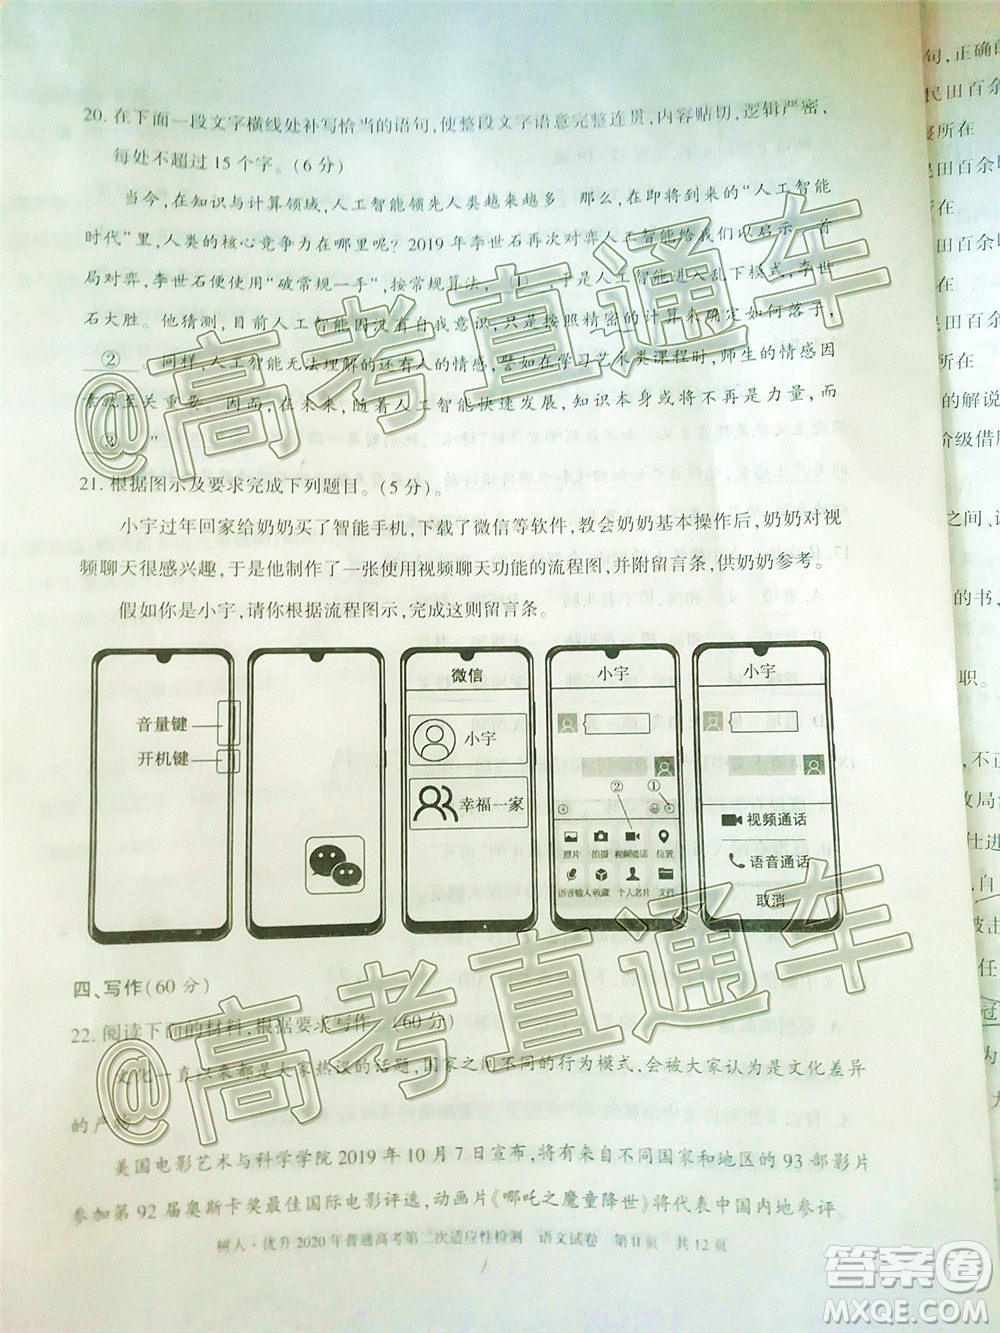 20. 在下面一段文字横线处补写恰当的语句,使整段文字语意完整连贯,内容贴切,逻辑严密,
每处不超过 15 个字。(6 分)
当今,在知识与计算领域,人工智能领先人类越来越多 那么,在即将到来的“人工智能
时代”里,人类的核心竞争力在哪里呢? 2019 年李世石再次对弈人工智能给我们以启示 首
局对弈,李世石便使用“破常规一手”,按常规算法, (1) ,于是人工智能进入乱下模式,李世
石大胜。他猜测,目前人工智能因为没有自我意识,只是按照精密的计算来确定如何落子,
② 同样,人工智能无法理解的还有人的情感,譬如在学习艺术类课程时,师生的情感因
素就至关重要。因而,在未来,随着人工智能快速发展,知识本身或将不再是力量,而
③ ”
21. 根据图示及要求完成下列题目。(5 分)。
小宇过年回家给奶奶买了智能手机,下载了微信等软件,教会奶奶基本操作后,奶奶对视
频聊天很感兴趣,于是他制作了一张使用视频聊天功能的流程图,并附留言条,供奶奶参考。
假如你是小宇,请你根据流程图示,完成这则留言条。
音量键
开机键
微信
小宇
幸福一家
小宇
② ①
照片 拍摄 视频通话 位置
语音输入 收藏 个人名片 文件
小宇
视频通话
语音通话
取消
四、写作(60 分)
22. 阅读下面的材料,根据要求写作。(60 分)
文化一直以来都是大家热议的话题,国家之间不同的行为模式,会被大家认为是文化差异
的产物
美国电影艺术与科学学院 2019 年 10 月 7 日宣布,将有来自不同国家和地区的 93 部影片
参加第 92 届奥斯卡奖最佳国际电影评选,动画片《哪吒之魔童降世》将代表中国内地参评。
树人·优升 2020 年普通高考第二次适应性检测 语文试卷 第 11 页 共 12 页
句,正确的
民田百余
所在
田百余
在
田百余
在
所在
的解说
阶级借
之间,
的书、
职。
不正
政局
仕进
自
被击
任
冠
为
大
@高考直通车
@高考直通车
答案圈
MXQE.COM